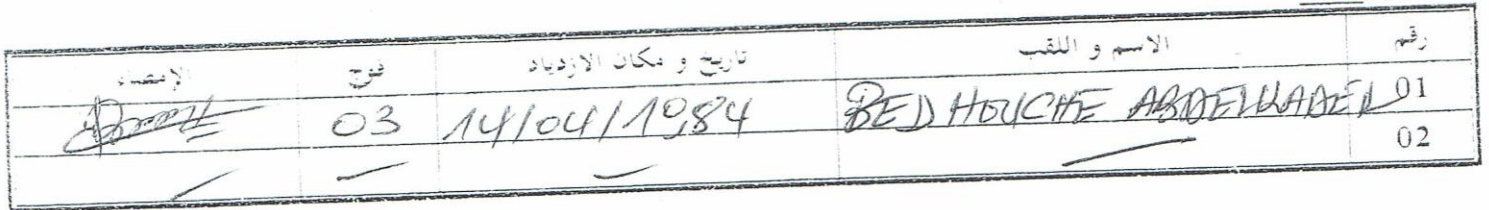 رقم الاسم و اللقب تاريخ و مكان الازدياد فوج الإمضاء
01 BEDHOUCHE ABDELKADER 14/04/1984 03
02 — — — —